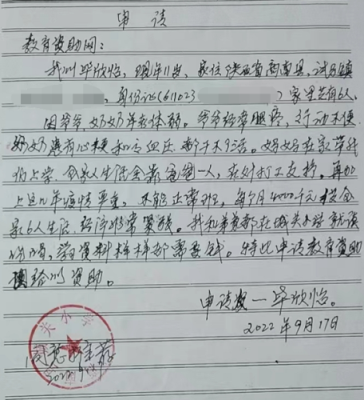 申请
教育资助网：
我叫毕欣怡，现年11岁，家住陕西省商南县，试马镇
，身份证(611023 ) 家里共有6人，
因爷爷、奶奶年老体弱。爷爷经常腿疼，行动不便
奶奶患有心梗和高血压，都干不了活。奶奶在家带
上学，全家人生活全靠爸爸一人，在外打工支撑，再加
上这几年疫情严重，不能正常上班，每个月4000千元工资全
家6人生活，经济非常紧张。我和弟弟都在城关小学就读
学习资料样样都需要钱。特此申请教育资助
给以资助。
申请人 — 毕欣怡。
2022年9月17日
小学